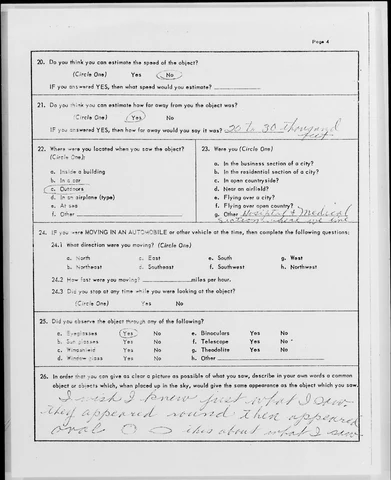 Page 4
20. Do you think you can estimate the speed of the object?
(Circle One) Yes No
IF you answered YES, then what speed would you estimate?
21. Do you think you can estimate how far away from you the object was?
(Circle One) Yes No
IF you answered YES, then how far away would you say it was? 20 to 30 thousand
feet.
22. Where were you located when you saw the object?
(Circle One):
a. Inside a building
b. In a car
c. Outdoors
d. In an airplane (type)
e. At sea
f. Other
23. Were you (Circle One)
a. In the business section of a city?
b. In the residential section of a city?
c. In open countryside?
d. Near an airfield?
e. Flying over a city?
f. Flying over open country?
g. Other Hospital & Medical
section where we live
24. IF you were MOVING IN AN AUTOMOBILE or other vehicle at the time, then complete the following questions:
24.1 What direction were you moving? (Circle One)
a. North c. East e. South g. West
b. Northeast d. Southeast f. Southwest h. Northwest
24.2 How fast were you moving? miles per hour.
24.3 Did you stop at any time while you were looking at the object?
(Circle One) Yes No
25. Did you observe the object through any of the following?
a. Eyeglasses Yes No e. Binoculars Yes No
b. Sun glasses Yes No f. Telescope Yes No
c. Windshield Yes No g. Theodolite Yes No
d. Window glass Yes No h. Other
26. In order that you can give as clear a picture as possible of what you saw, describe in your own words a common
object or objects which, when placed up in the sky, would give the same appearance as the object which you saw.
I wish I knew just what I saw.
they appeared round then appeared
oval this about what I saw